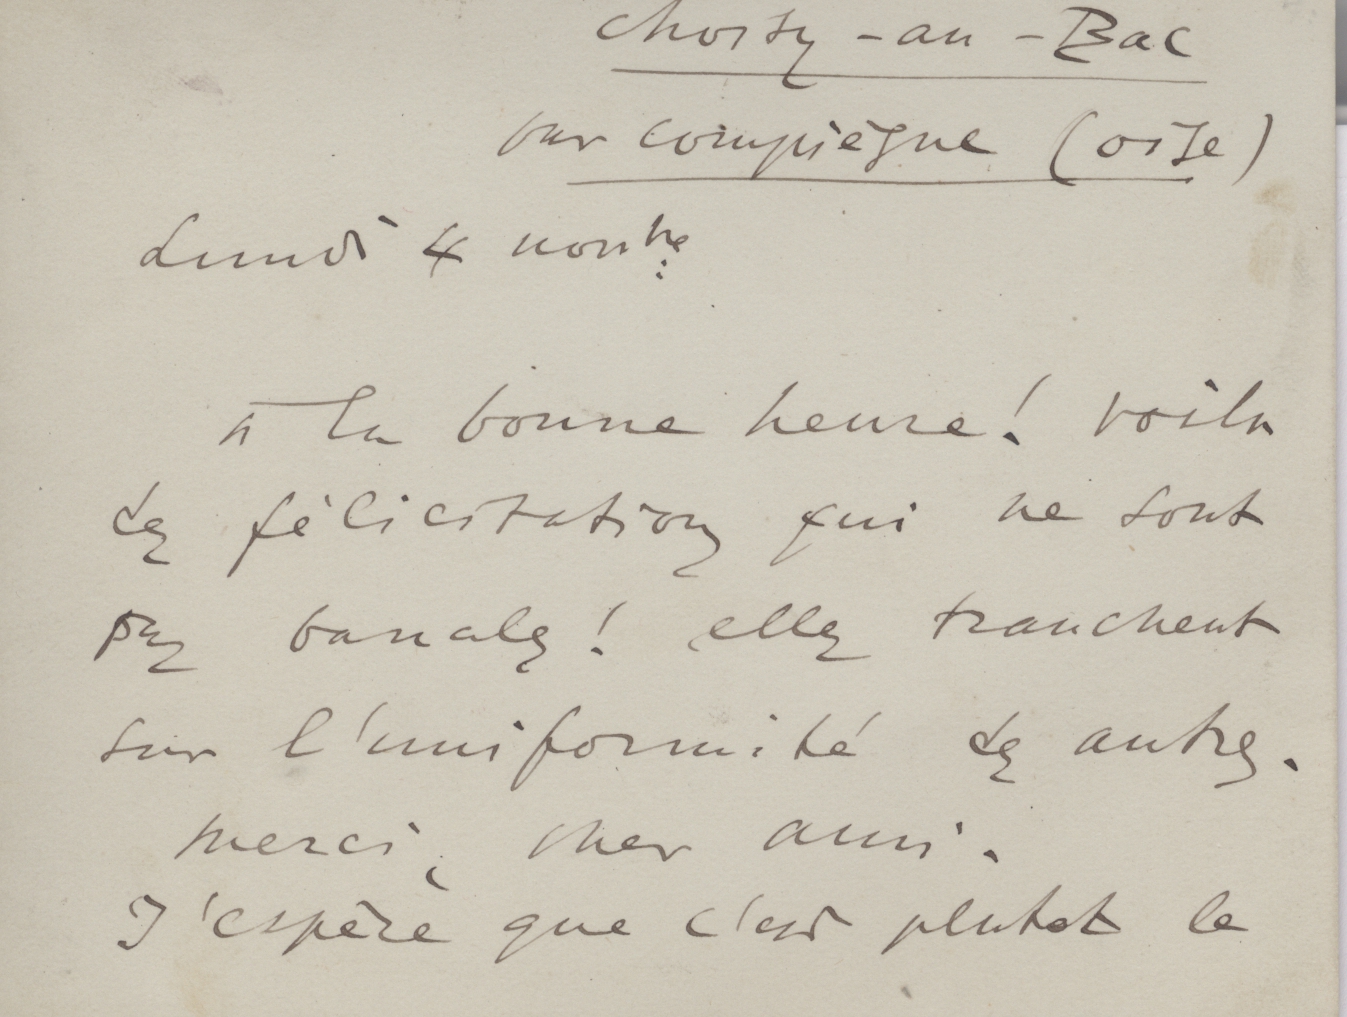 Choisy-au-Bac
par Compiègne (Oise)
Lundi 4 novbre
à la bonne heure! voilà
des félicitations qui ne sont
pas banales! elles tranchent
sur l'uniformité des autres.
merci, cher ami.
J'espère que c'est plutot le